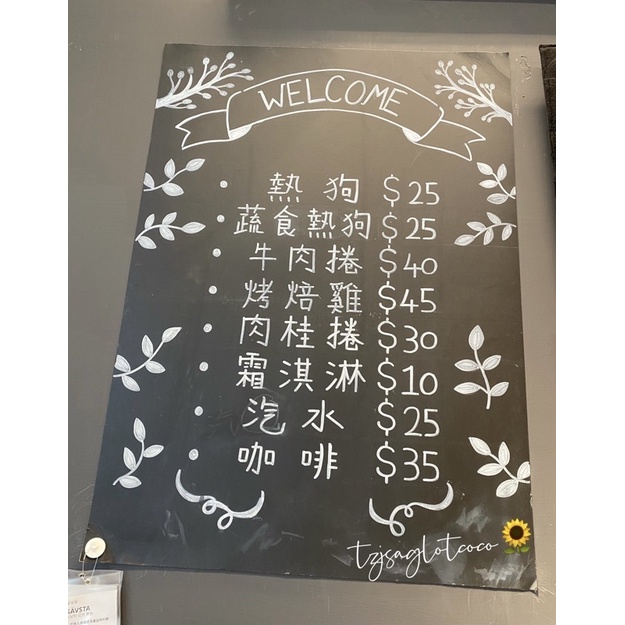 WELCOME
熱狗 $25
蔬食熱狗 $25
牛肉捲 $40
烤焙雞 $45
肉桂捲 $30
霜淇淋 $10
汽水 $25
咖啡 $35
tzjsaglotcoco
KAVSTA